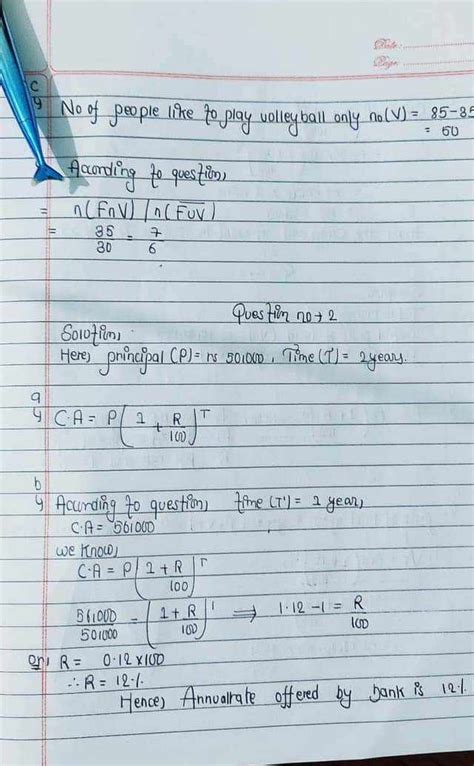 Date:
Page:
c
y No of people like to play volleyball only no(V) = 85-35
= 50
Acording to question,
= n(F∩V) / n(F̅U̅V̅)
= 35/30 = 7/6
Question no → 2
Solution,
Here, principal (P) = rs 501000, Time (T) = 2 years.
a
y C.A = P(1 + R/100)^T
b
y Acurding to question, time (T') = 1 year,
C.A = 561000
we know,
C.A = P(1 + R/100)^T
561000/501000 = (1 + R/100)^1 ⟹ 1.12 - 1 = R/100
or, R = 0.12 x 100
∴ R = 12%
Hence, Annualrate offered by bank is 12%